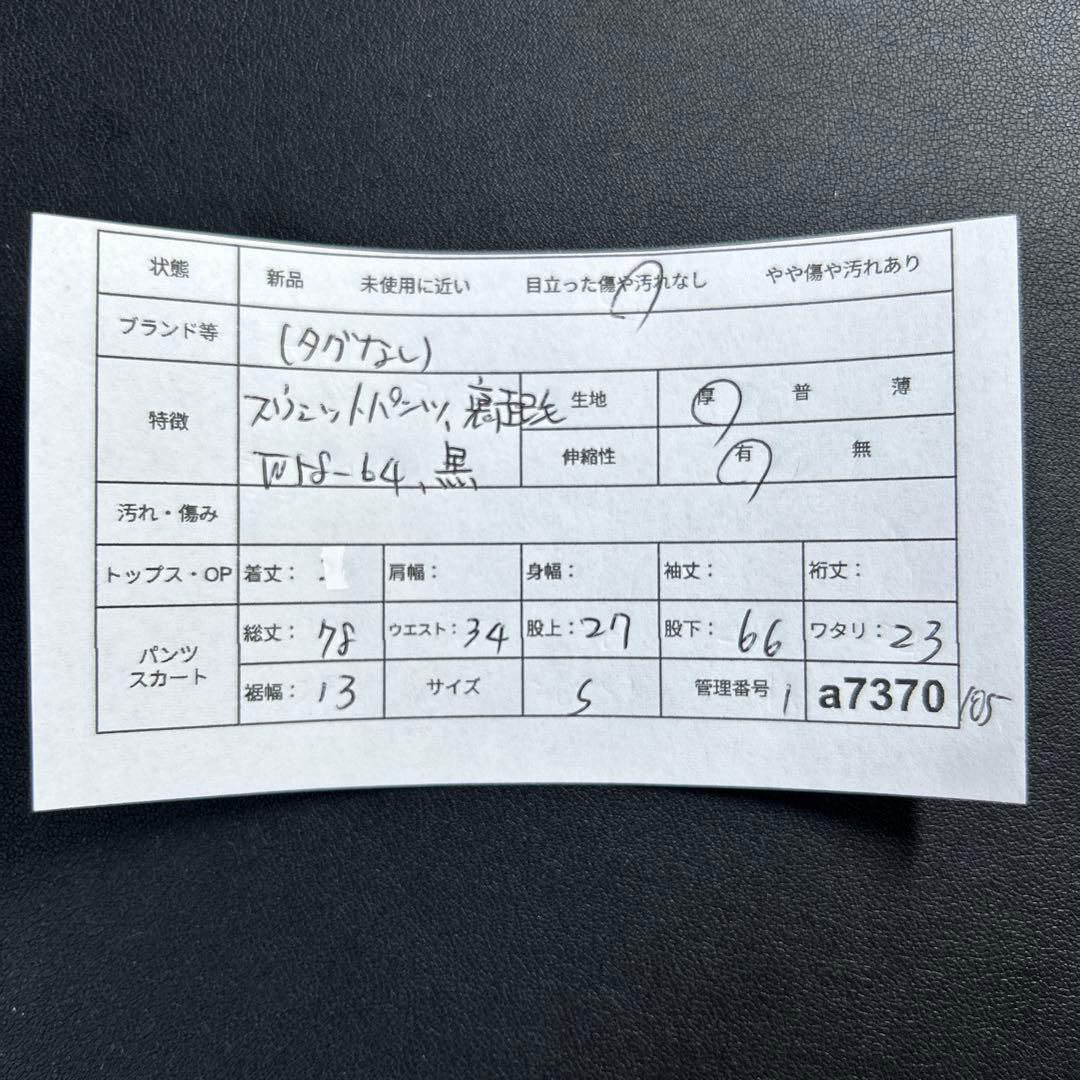 状態 新品 未使用に近い 目立った傷や汚れなし やや傷や汚れあり
ブランド等 (タグなし)
特徴 スウェットパンツ、裏起毛 生地 厚 普 薄
W58-64、黒 伸縮性 有 無
汚れ・傷み
トップス・OP 着丈: 肩幅: 身幅: 袖丈: 裄丈:
パンツ スカート 総丈: 78 ウエスト: 34 股上: 27 股下: 66 ワタリ: 23
裾幅: 13 サイズ S 管理番号 i a7370 /105